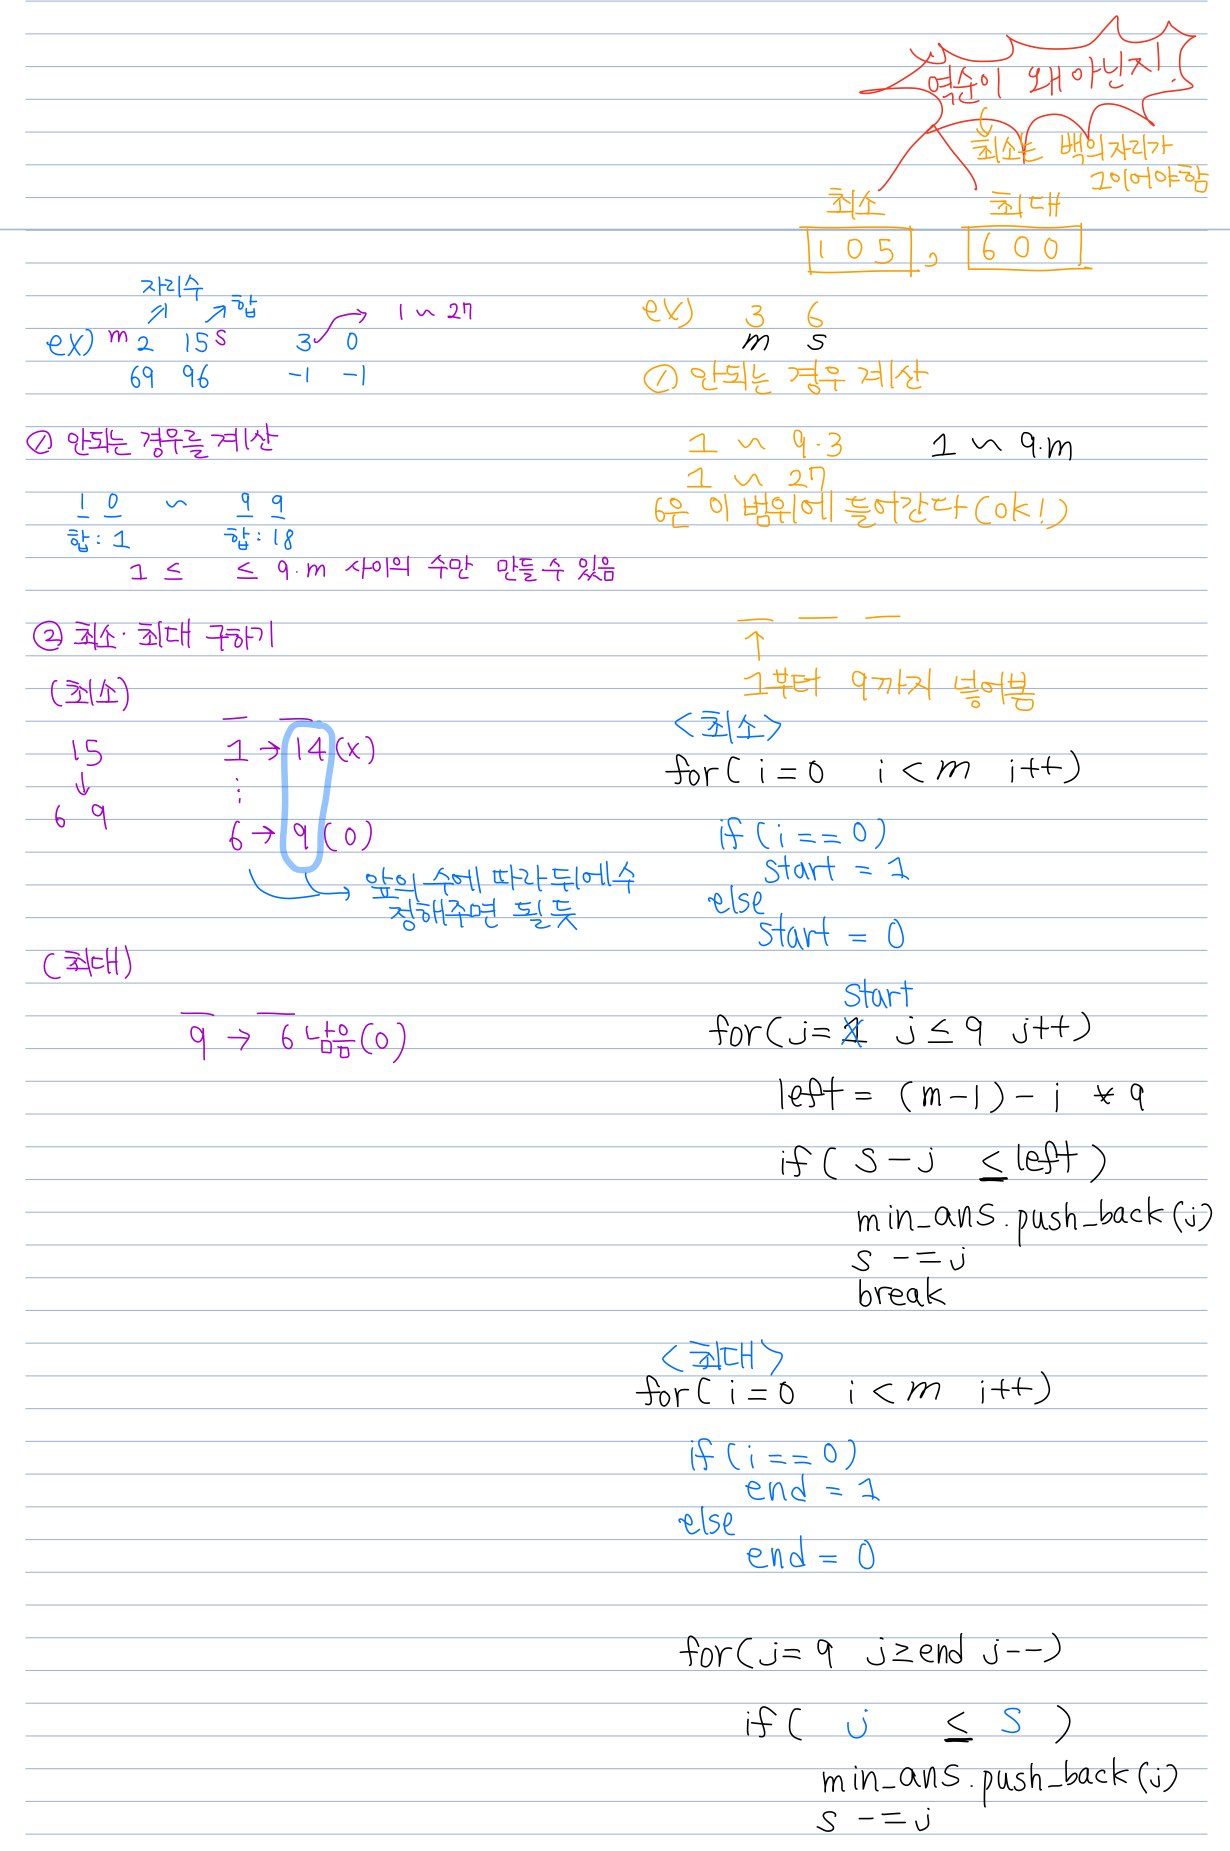 역순이 왜 아닌지!
최소는 백의자리가
1이어야함
최소 최대
105, 600
자리수
합
ex) m 2 15 s 3 0 1 ~ 27
69 96 -1 -1
① 안되는 경우를 계산
1 0 ~ 9 9
합: 1 합: 18
1 ≤ ≤ 9·m 사이의 수만 만들 수 있음
② 최소·최대 구하기
(최소)
15 1 → 14 (x)
↓ :
6 9 6 → 9 (0)
앞의 수에 따라 뒤에 수
정해주면 될 듯
(최대)
9 → 6 남음 (0)
ex) 3 6
m s
① 안되는 경우 계산
1 ~ 9·3 1 ~ 9·m
1 ~ 27
6은 이 범위에 들어간다 (ok!)
↑
1부터 9까지 넣어봄
<최소>
for( i=0 i<m i++)
if (i == 0)
start = 1
else
start = 0
start
for( j= 1 j ≤ 9 j++)
left = (m-1) - i * 9
if( s - j ≤ left )
min_ans.push_back(j)
s -= j
break
<최대>
for( i=0 i<m i++)
if (i == 0)
end = 1
else
end = 0
for( j= 9 j≥end j--)
if( j ≤ s )
min_ans.push_back(j)
s -= j